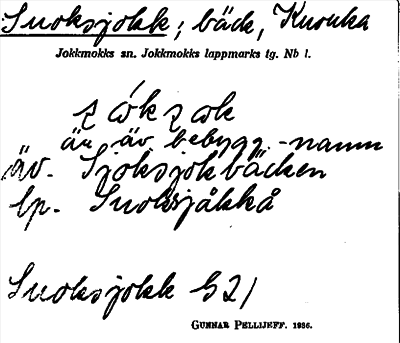 Suoksjokk; bäck, Kuouka
Jokkmokks sn. Jokkmokks lappmarks tg. Nb l.
är äv. bebygg.-namn
äv. Sjoksjokbäcken
lp. Suoksjåkkå
Suoksjokk G21
GUNNAR PELLIJEFF. 1936.